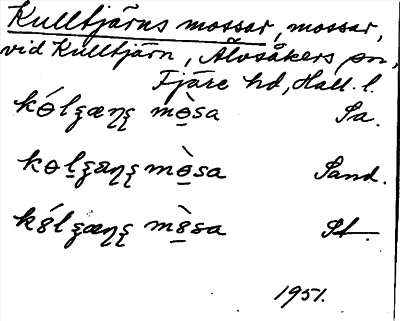 Kulltjärns mossar, mossar,
vid Kulltjärn, Älvsåkers sn,
Fjäre hd, Hall. l.
kɵ́lʒæɳʒ mɵ̠̀sa Sa.
kɵl̠ʒæɳʒ mɵ̠̀sa Sand.
k8́lʒæɳʒ m8̠̀sa St.
1951.